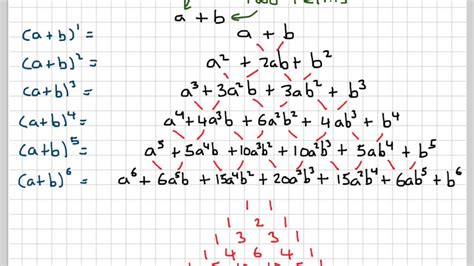 a + b
(a+b)¹ = a + b
(a+b)² = a² + 2ab + b²
(a+b)³ = a³ + 3a²b + 3ab² + b³
(a+b)⁴ = a⁴ + 4a³b + 6a²b² + 4ab³ + b⁴
(a+b)⁵ = a⁵ + 5a⁴b + 10a³b² + 10a²b³ + 5ab⁴ + b⁵
(a+b)⁶ = a⁶ + 6a⁵b + 15a⁴b² + 20a³b³ + 15a²b⁴ + 6ab⁵ + b⁶
1 1
1 2 1
1 3 3 1
1 4 6 4 1